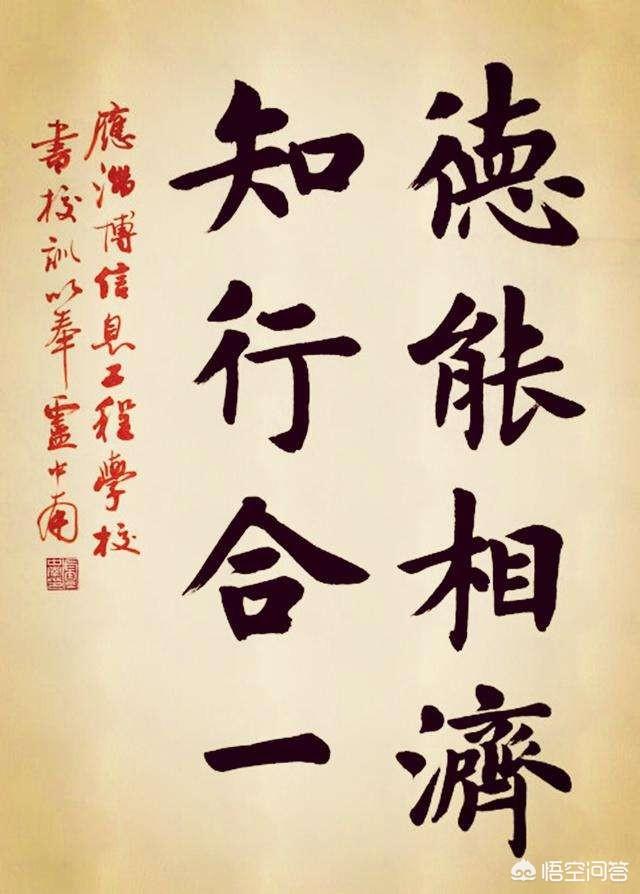 德能相濟
知行合一
應淄博信息工程學校
書校訓以奉盧中南
悟空问答